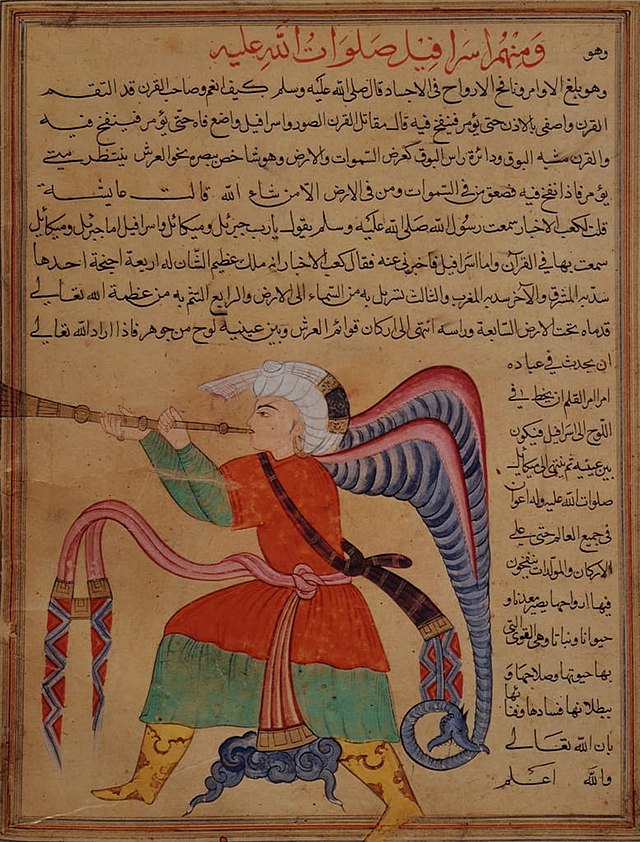 ومنهم اسرافيل صلوات الله عليه وهو
وهو يبلغ الاوامر ونافخ الارواح فى الاجساد قال صلى الله عليه وسلم كيف انعم وصاحب القرن قد التقم
القرن واصغى بالاذن حتى يؤمر فينفخ فيه قال مقاتل القرن الصور واسرافيل واضع فاه حتى يؤمر فينفخ فيه
والقرن مشبه البوق ودائرة راس البوق كعرض السموات والارض وهو شاخص ببصره نحو العرش ينتظر متى
يؤمر فاذا نفخ فيه فصعق من فى السموات ومن فى الارض الا من شاء الله قالت عايشة
قلت لكعب الاخبار سمعت رسول الله صلى الله عليه وسلم يقول يا رب جبرئل وميكائل واسرافيل اما جبرئل وميكائل
سمعت بها فى القرآن واما اسرافيل فاخبرنى عنه فقال كعب الاخبار انه ملك عظيم الشان له اربعة اجنحة احدها
سد به المشرق والآخر سد به المغرب والثالث تسربل به من السماء الى الارض والرابع التثم به من عظمة الله تعالى
قدماه تحت الارض السابعة وراسه انتهى الى اركان قوائم العرش وبين عينيه لوح من جوهر فاذا اراد الله تعالى
ان يحدث فى عباده
امرا امر القلم ان يخط فى
اللوح الى اسرافيل فيكون
بين عينيه ثم ينتهى الى ميكائل
صلوات الله عليه وله اعوان
فى جميع العالم حتى على
الاركان والمولدات ينفخون
فيها ارواحها يصير معدنا و
حيوانا ونباتا وهى القوى التى
بها حيوتها وصلاحها و
ببطلانها فسادها وفنائها
بان الله تعالى
والله اعلم